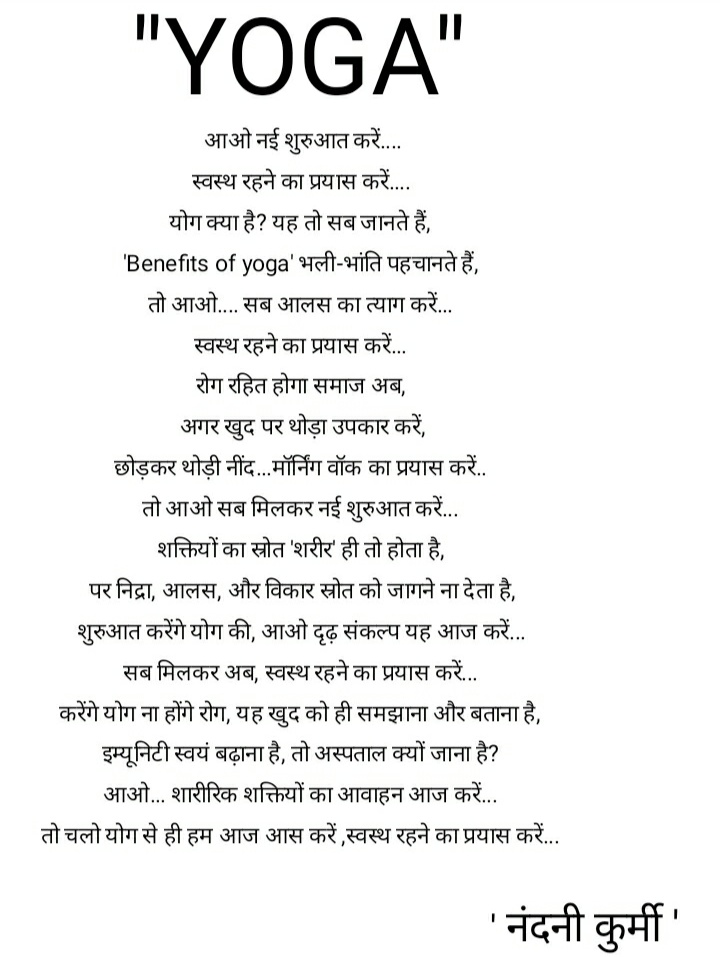 "YOGA"
आओ नई शुरुआत करें....
स्वस्थ रहने का प्रयास करें....
योग क्या है? यह तो सब जानते हैं,
'Benefits of yoga' भली-भांति पहचानते हैं,
तो आओ.... सब आलस का त्याग करें...
स्वस्थ रहने का प्रयास करें...
रोग रहित होगा समाज अब,
अगर खुद पर थोड़ा उपकार करें,
छोड़कर थोड़ी नींद...मॉर्निंग वॉक का प्रयास करें..
तो आओ सब मिलकर नई शुरुआत करें...
शक्तियों का स्रोत 'शरीर' ही तो होता है,
पर निद्रा, आलस, और विकार स्रोत को जागने ना देता है,
शुरुआत करेंगे योग की, आओ दृढ़ संकल्प यह आज करें...
सब मिलकर अब, स्वस्थ रहने का प्रयास करें...
करेंगे योग ना होंगे रोग, यह खुद को ही समझाना और बताना है,
इम्यूनिटी स्वयं बढ़ाना है, तो अस्पताल क्यों जाना है?
आओ... शारीरिक शक्तियों का आवाहन आज करें...
तो चलो योग से ही हम आज आस करें ,स्वस्थ रहने का प्रयास करें...
' नंदनी कुर्मी '